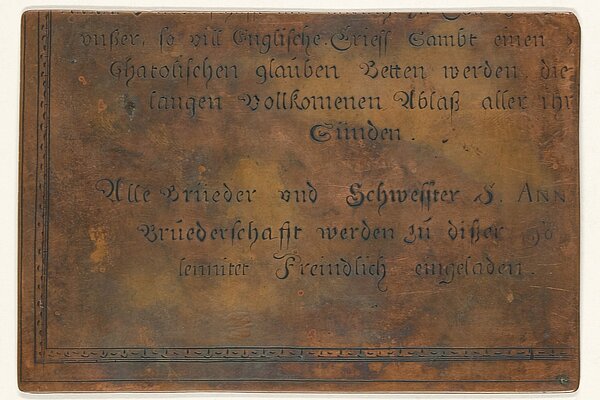 vußer, so vill Englische Griess Sambt einen
Chatolischen glauben Betten werden, die
langen Vollkomenen Ablaß aller ihr
Sünden.
Alle Brüeder vnd Schwesster S. ANN
Brüederschafft werden zu dißer
lennitet Freindlich eingeladen.